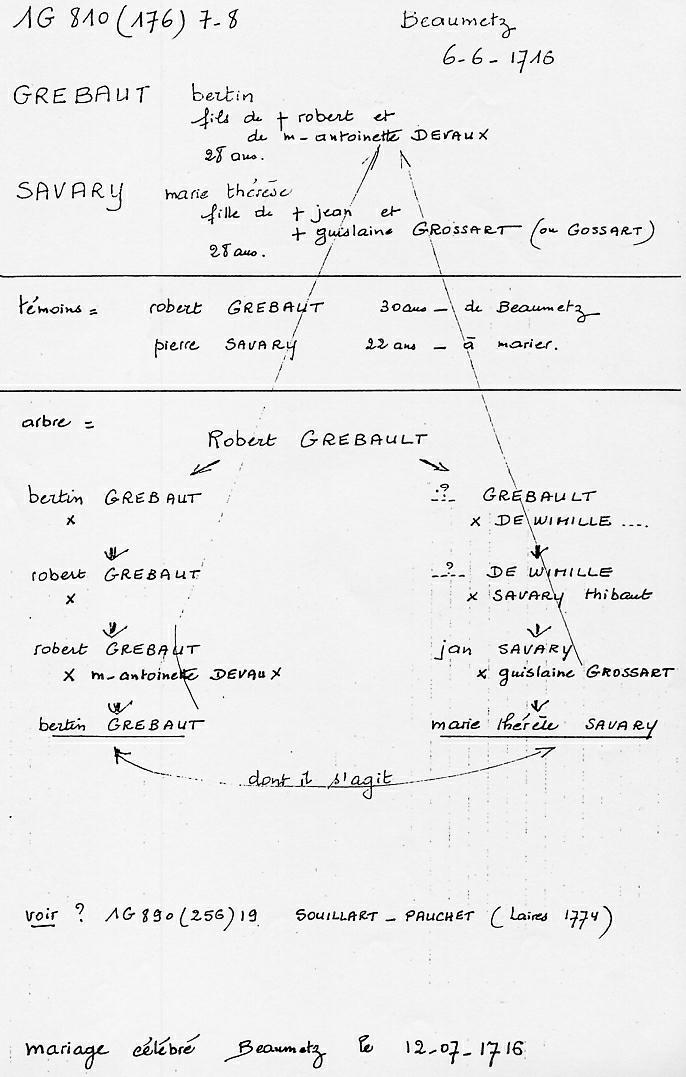 1G 810 (176) 7-8 Beaumetz
6-6-1716
GREBAUT bertin
fils de + robert et
de m-antoinette DEVAUX
28 ans.
SAVARY marie thérèse
fille de + jean et
+ guislaine GROSSART (ou GOSSART)
28 ans.
témoins = robert GREBAUT 30 ans — de Beaumetz
pierre SAVARY 22 ans — à marier.
arbre =
Robert GREBAULT
bertin GREBAUT .?. GREBAULT
x x DE WIMILLE ....
robert GREBAUT ..?.. DE WIMILLE
x x SAVARY thibaut
robert GREBAUT jan SAVARY
x m-antoinette DEVAUX x guislaine GROSSART
bertin GREBAUT marie thérèse SAVARY
dont il s'agit
voir ? 1G 890 (256) 19 SOUILLART - PAUCHET (Laires 1774)
mariage célébré Beaumetz le 12-07-1716